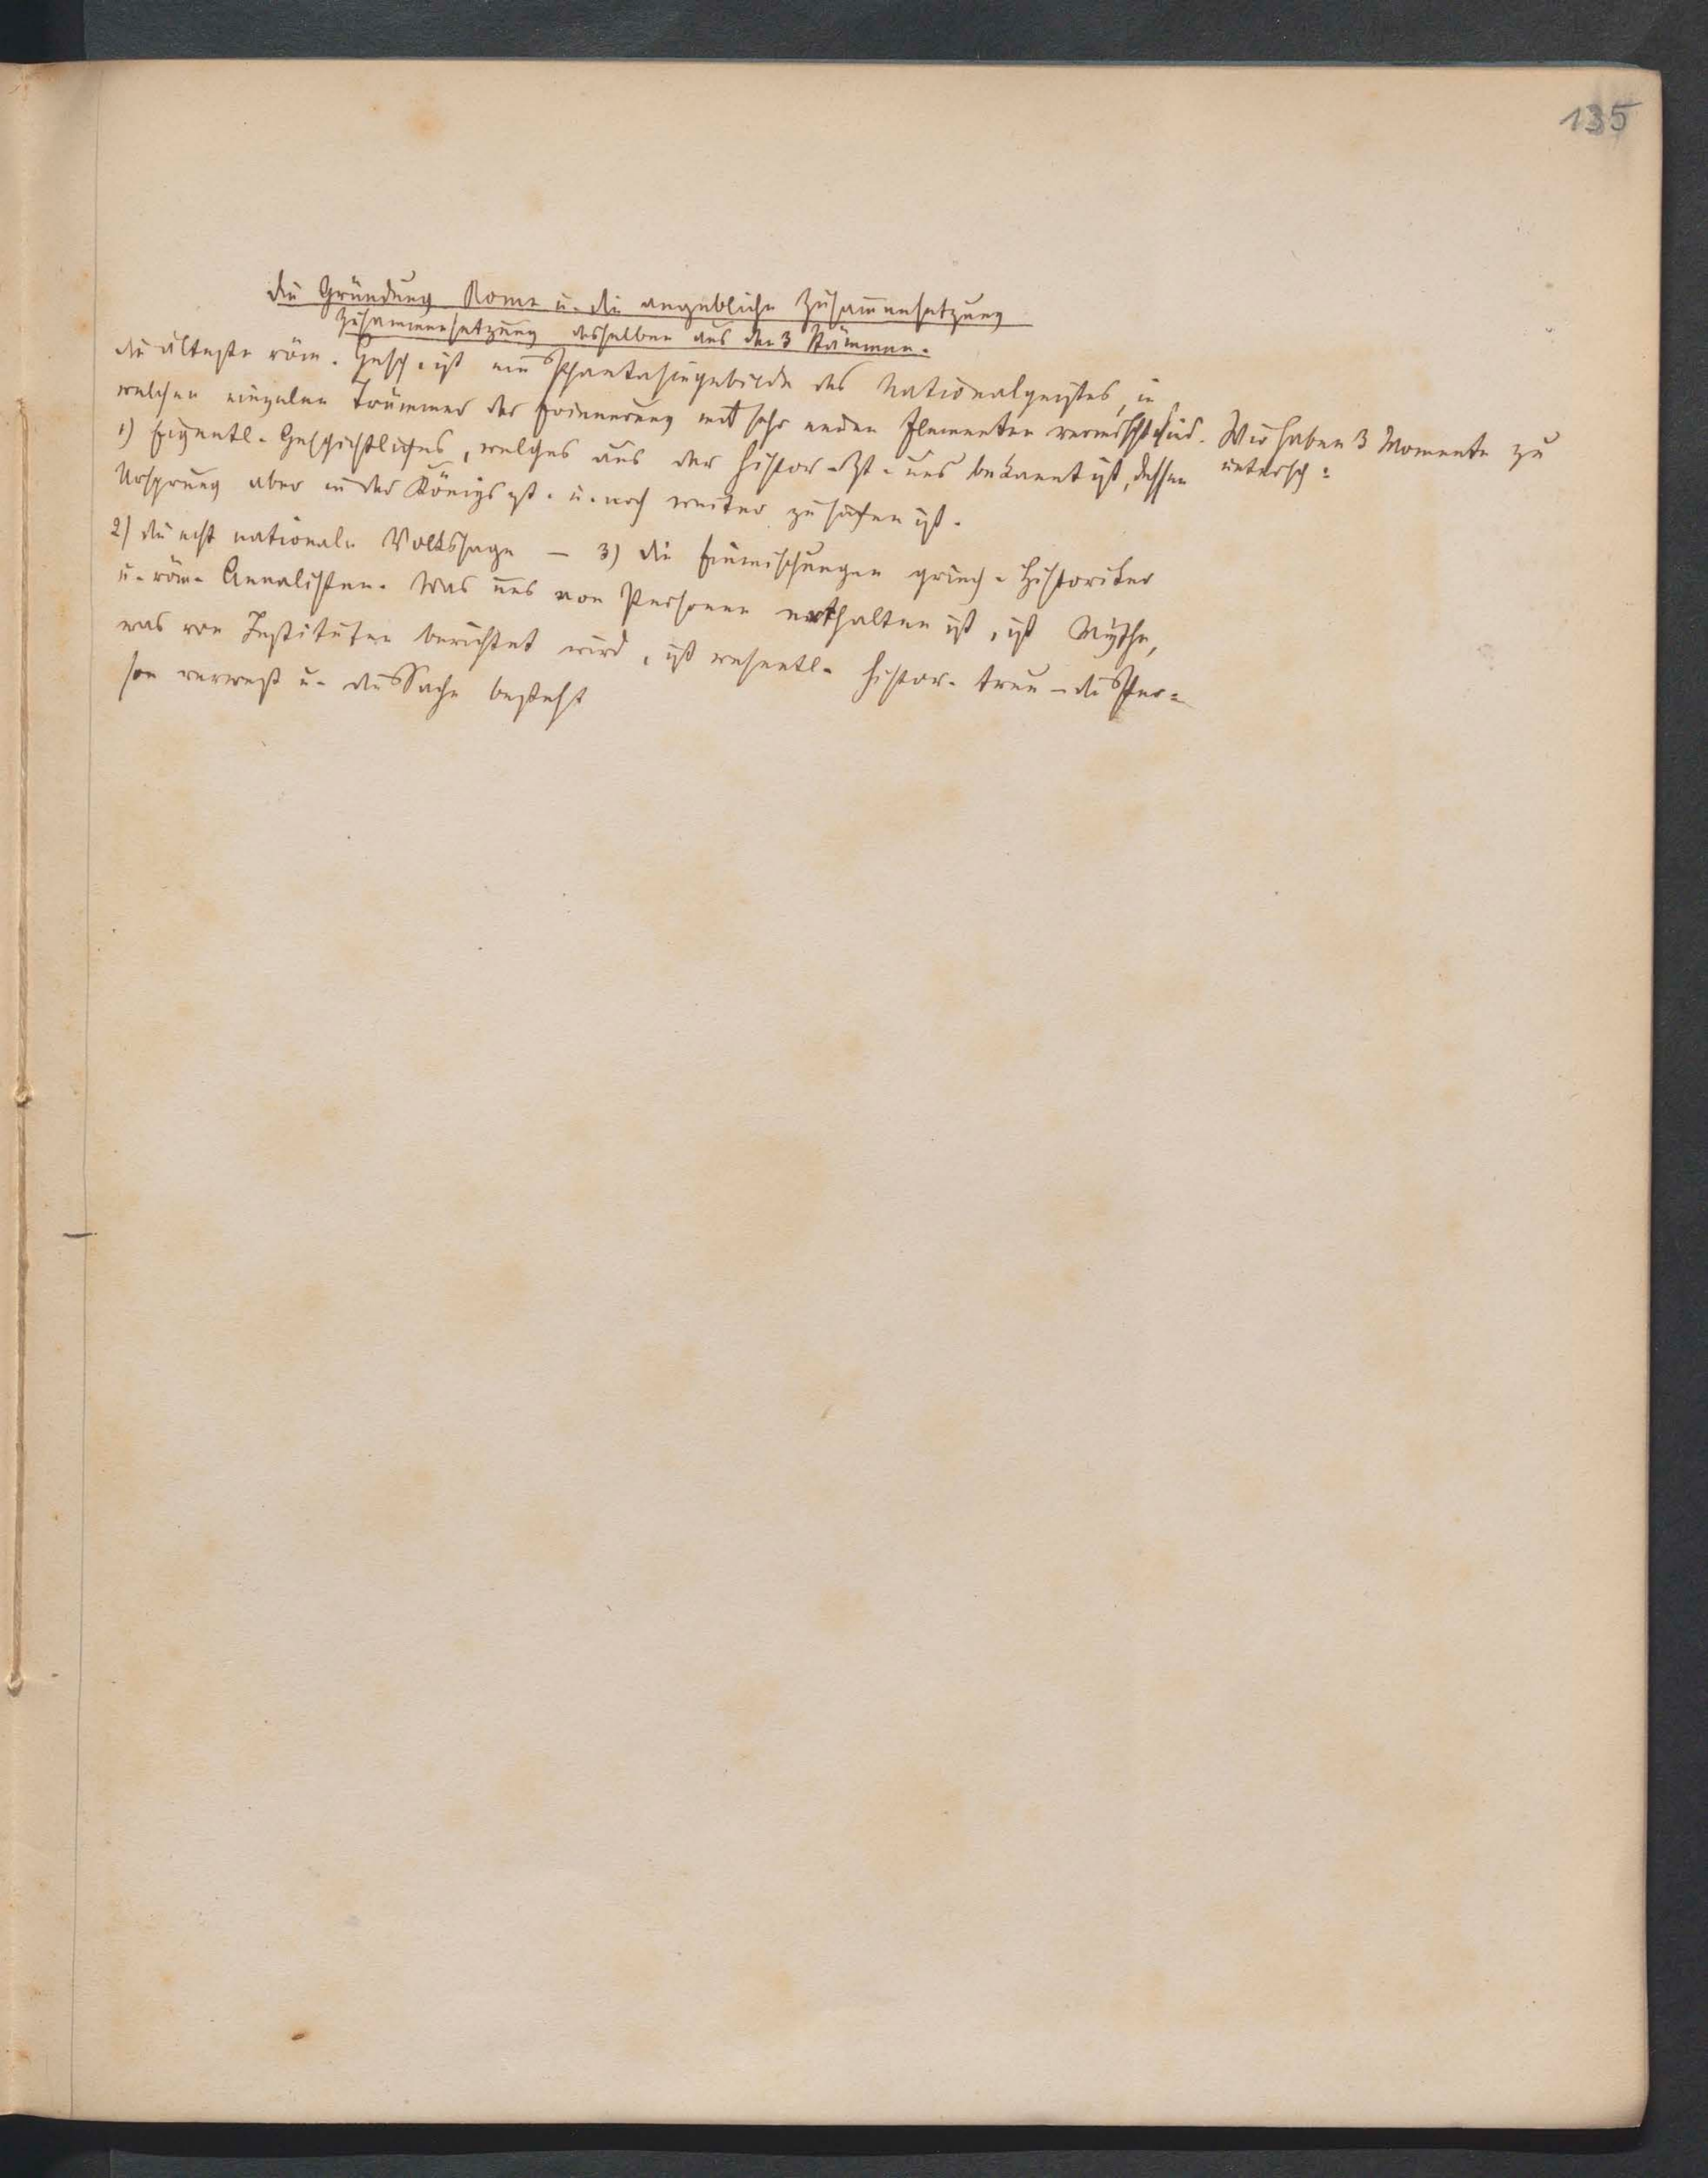 135
die Gründung Roms u. die angebliche Zusam̅ensetzung
Zusammensetzung desselben aus den 3 Stämmen.
die älteste röm. Gesch. ist ein Phantasiegebilde des Nationalgeistes, in
welchen einzelne Trümmer der Erinnerung mit sehr anden Elementen vermischt sind. Wir haben 3 Momente zu
untersch:
1) Eigentl. Geschichtliches, welches aus der histor. Zt. uns bekannt ist, dessen
Ursprung aber in der Königszt. u. noch weiter zu suchen ist.
2) die echt nationale Volkssage – 3) die Einmischungen griech. Historiker
u. röm. Annalisten. Was uns von Personen enthalten ist, ist Mythe,
was von Instituten berichtet wird, ist wesentl. histor. treu – die Per=
son verwest u. die Sache besteht